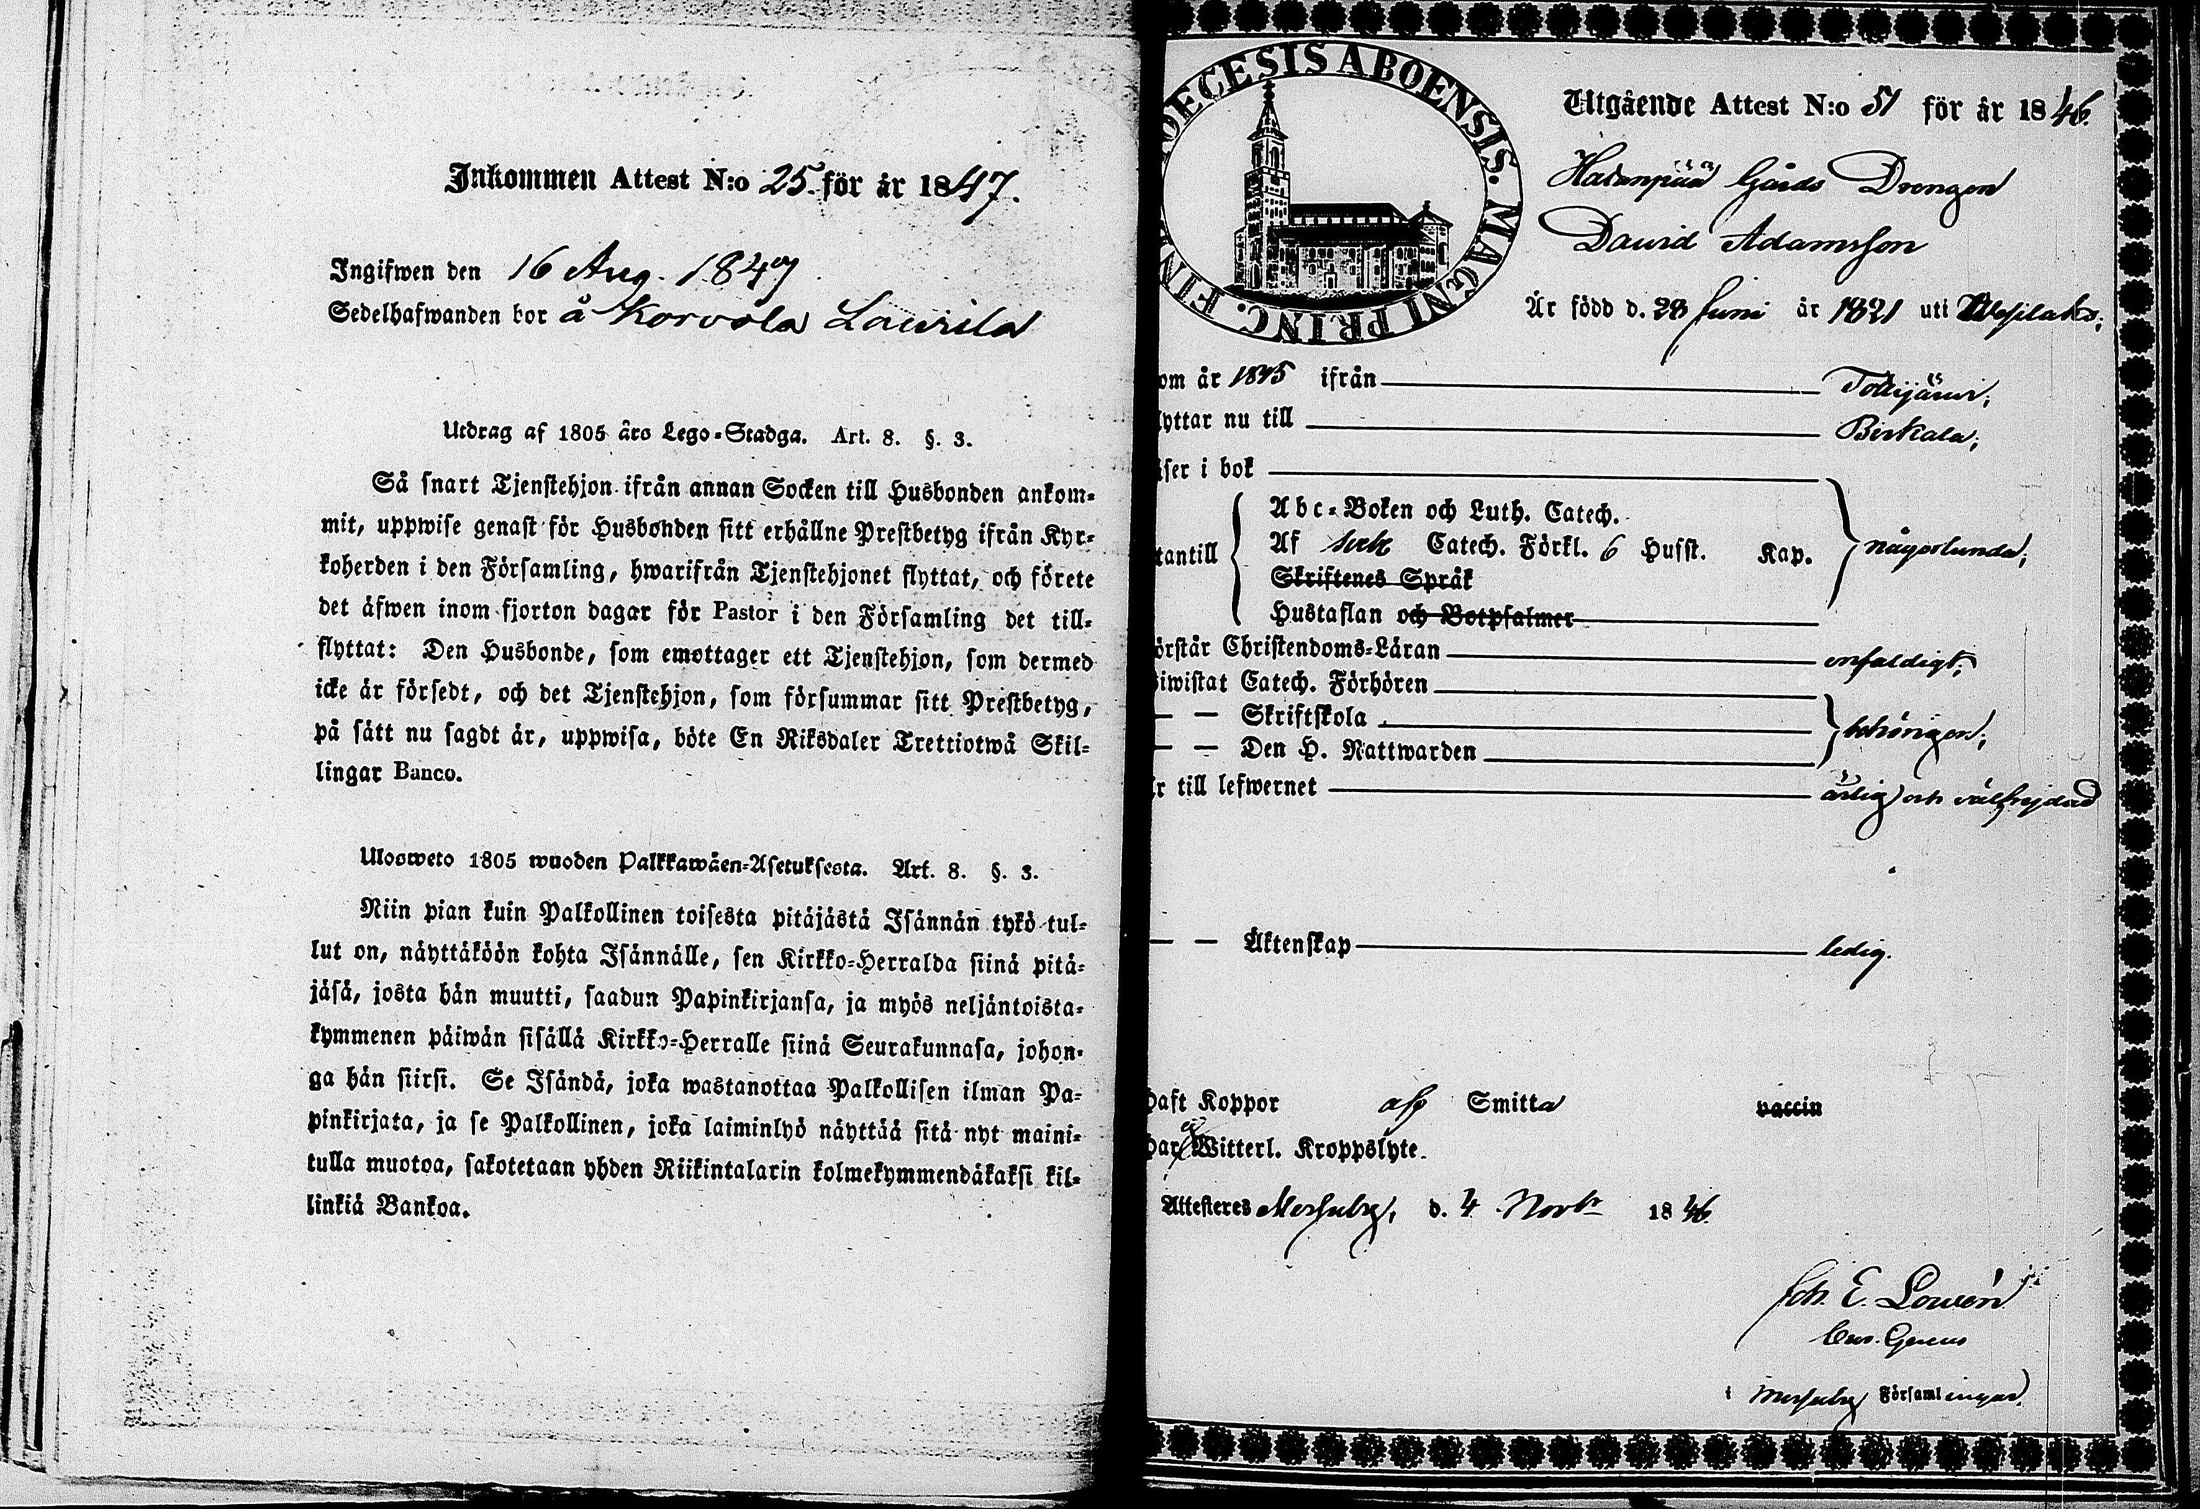 Inkommen Attest N:o 25. för år 1847.
Ingifwen den 16 Aug. 1847
Sedelhafwanden bor å Korvola Laurila
Utdrag af 1805 års Lego-Stadga. Art. 8. §. 3.
Så snart Tjenstehjon ifrån annan Socken till Husbonden ankom-
mit, uppwise genast för Husbonden sitt erhållne Prestbetyg ifrån Kyr-
koherden i den Församling, hwarifrån Tjenstehjonet flyttat, och förete
det äfwen inom fjorton dagar för Pastor i den Församling det till-
flyttat: Den Husbonde, som emottager ett Tjenstehjon, som dermed
icke är försedt, och det Tjenstehjon, som försummar sitt Prestbetyg,
på sätt nu sagdt är, uppwisa, böte En Riksdaler Trettiotwå Skil-
lingar Banco.
Ulosweto 1805 wuoden Palkkawäen-Asetuksesta. Art. 8. §. 3.
Niin pian kuin Palkollinen toisesta pitäjästä Isännän tykö tul-
lut on, näyttäköön kohta Isännälle, sen Kirkko-Herralda siinä pitä-
jäsä, josta hän muutti, saadun Papinkirjansa, ja myös neljäntoista-
kymmenen päiwän sisällä Kirkko-Herralle siinä Seurakunnasa, johon-
ga hän siirsi. Se Isändä, joka wastanottaa Palkollisen ilman Pa-
pinkirjata, ja se Palkollinen, joka laiminlyö näyttää sitä nyt maini-
tulla muotoa, sakotetaan yhden Riikintalarin kolmekymmendäkaksi kil-
linkiä Bankoa.
DECESIS ABOENSIS. MAGNI PRINC. FIN
Utgående Attest N:o 51 för år 1846.
Hatanpää Gårds Drengen
David Adamsson
Är född d. 28 Juni år 1821 uti Wesilaks;
om år 1845 ifrån Tottijärvi;
lyttar nu till Birkala;
äser i bok
Abc-Boken och Luth. Catech.
tantill Af Catech. Förkl. 6 Husst. Kap. någorlunda;
Skriftenes Språk
Hustaflan och Botpsalmer
örstår Christendoms-Läran enfaldigt;
iwistat Catech. Förhören
— — Skriftskola behörigen;
— — Den H. Nattwarden
r till lefwernet ärlig och välfrejdad
— — Äktenskap ledig.
haft Koppor af Smitta vaccin
har ej Witterl. Kroppslyte.
Attesteres Messuby, d. 4 Novbr 1846.
Joh. E. Lovén
i Messuby Församlingar.